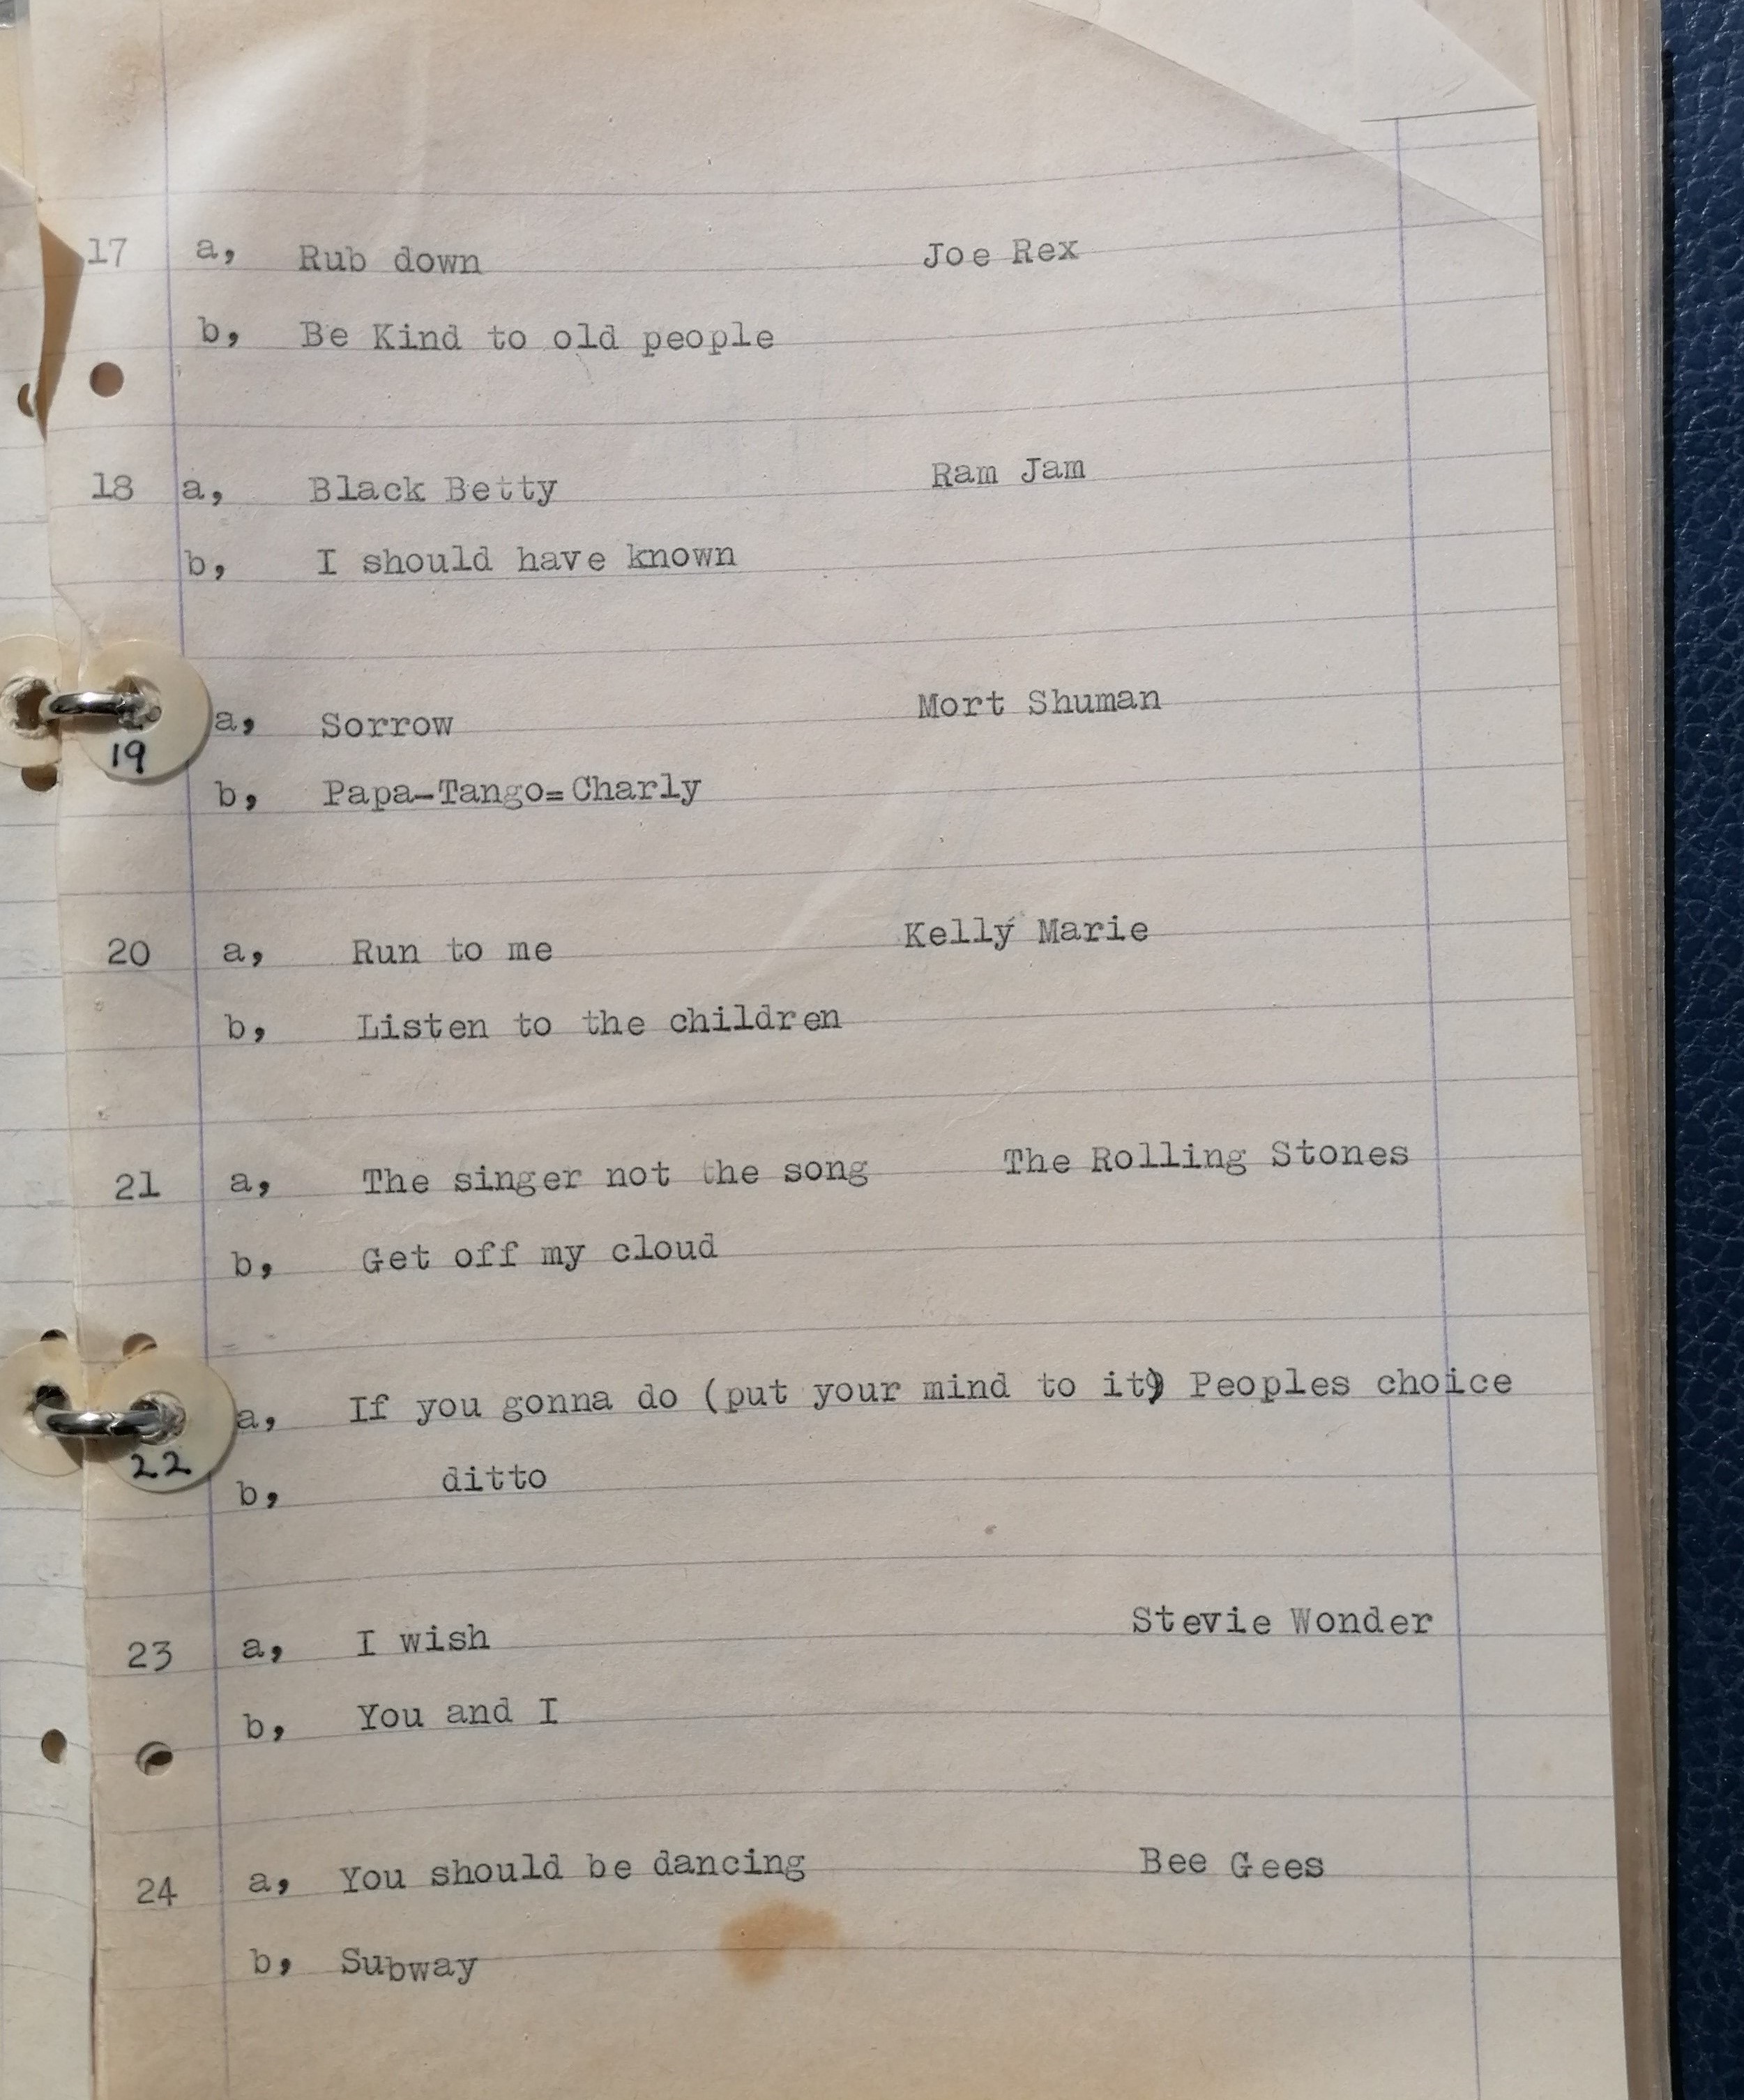 17 a, Rub down Joe Rex
b, Be Kind to old people
18 a, Black Betty Ram Jam
b, I should have known
a, Sorrow Mort Shuman
19
b, Papa-Tango=Charly
20 a, Run to me Kelly Marie
b, Listen to the children
21 a, The singer not the song The Rolling Stones
b, Get off my cloud
a, If you gonna do (put your mind to it) Peoples choice
22
b, ditto
23 a, I wish Stevie Wonder
b, You and I
24 a, You should be dancing Bee Gees
b, Subway